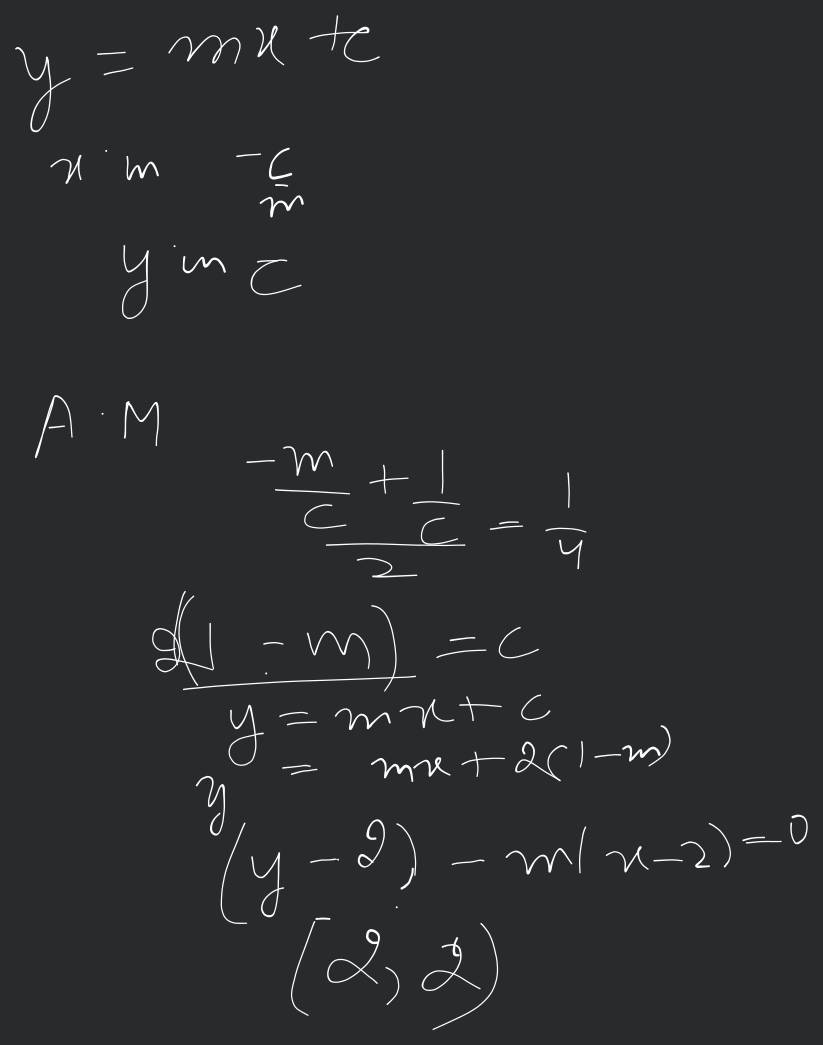 y = mx + c
x in -c/m
y in c
A.M
(-m/c + 1/c)/2 = 1/4
2(1 - m) = c
y = mx + c
y = mx + 2(1-m)
(y - 2) - m(x-2) = 0
(2, 2)